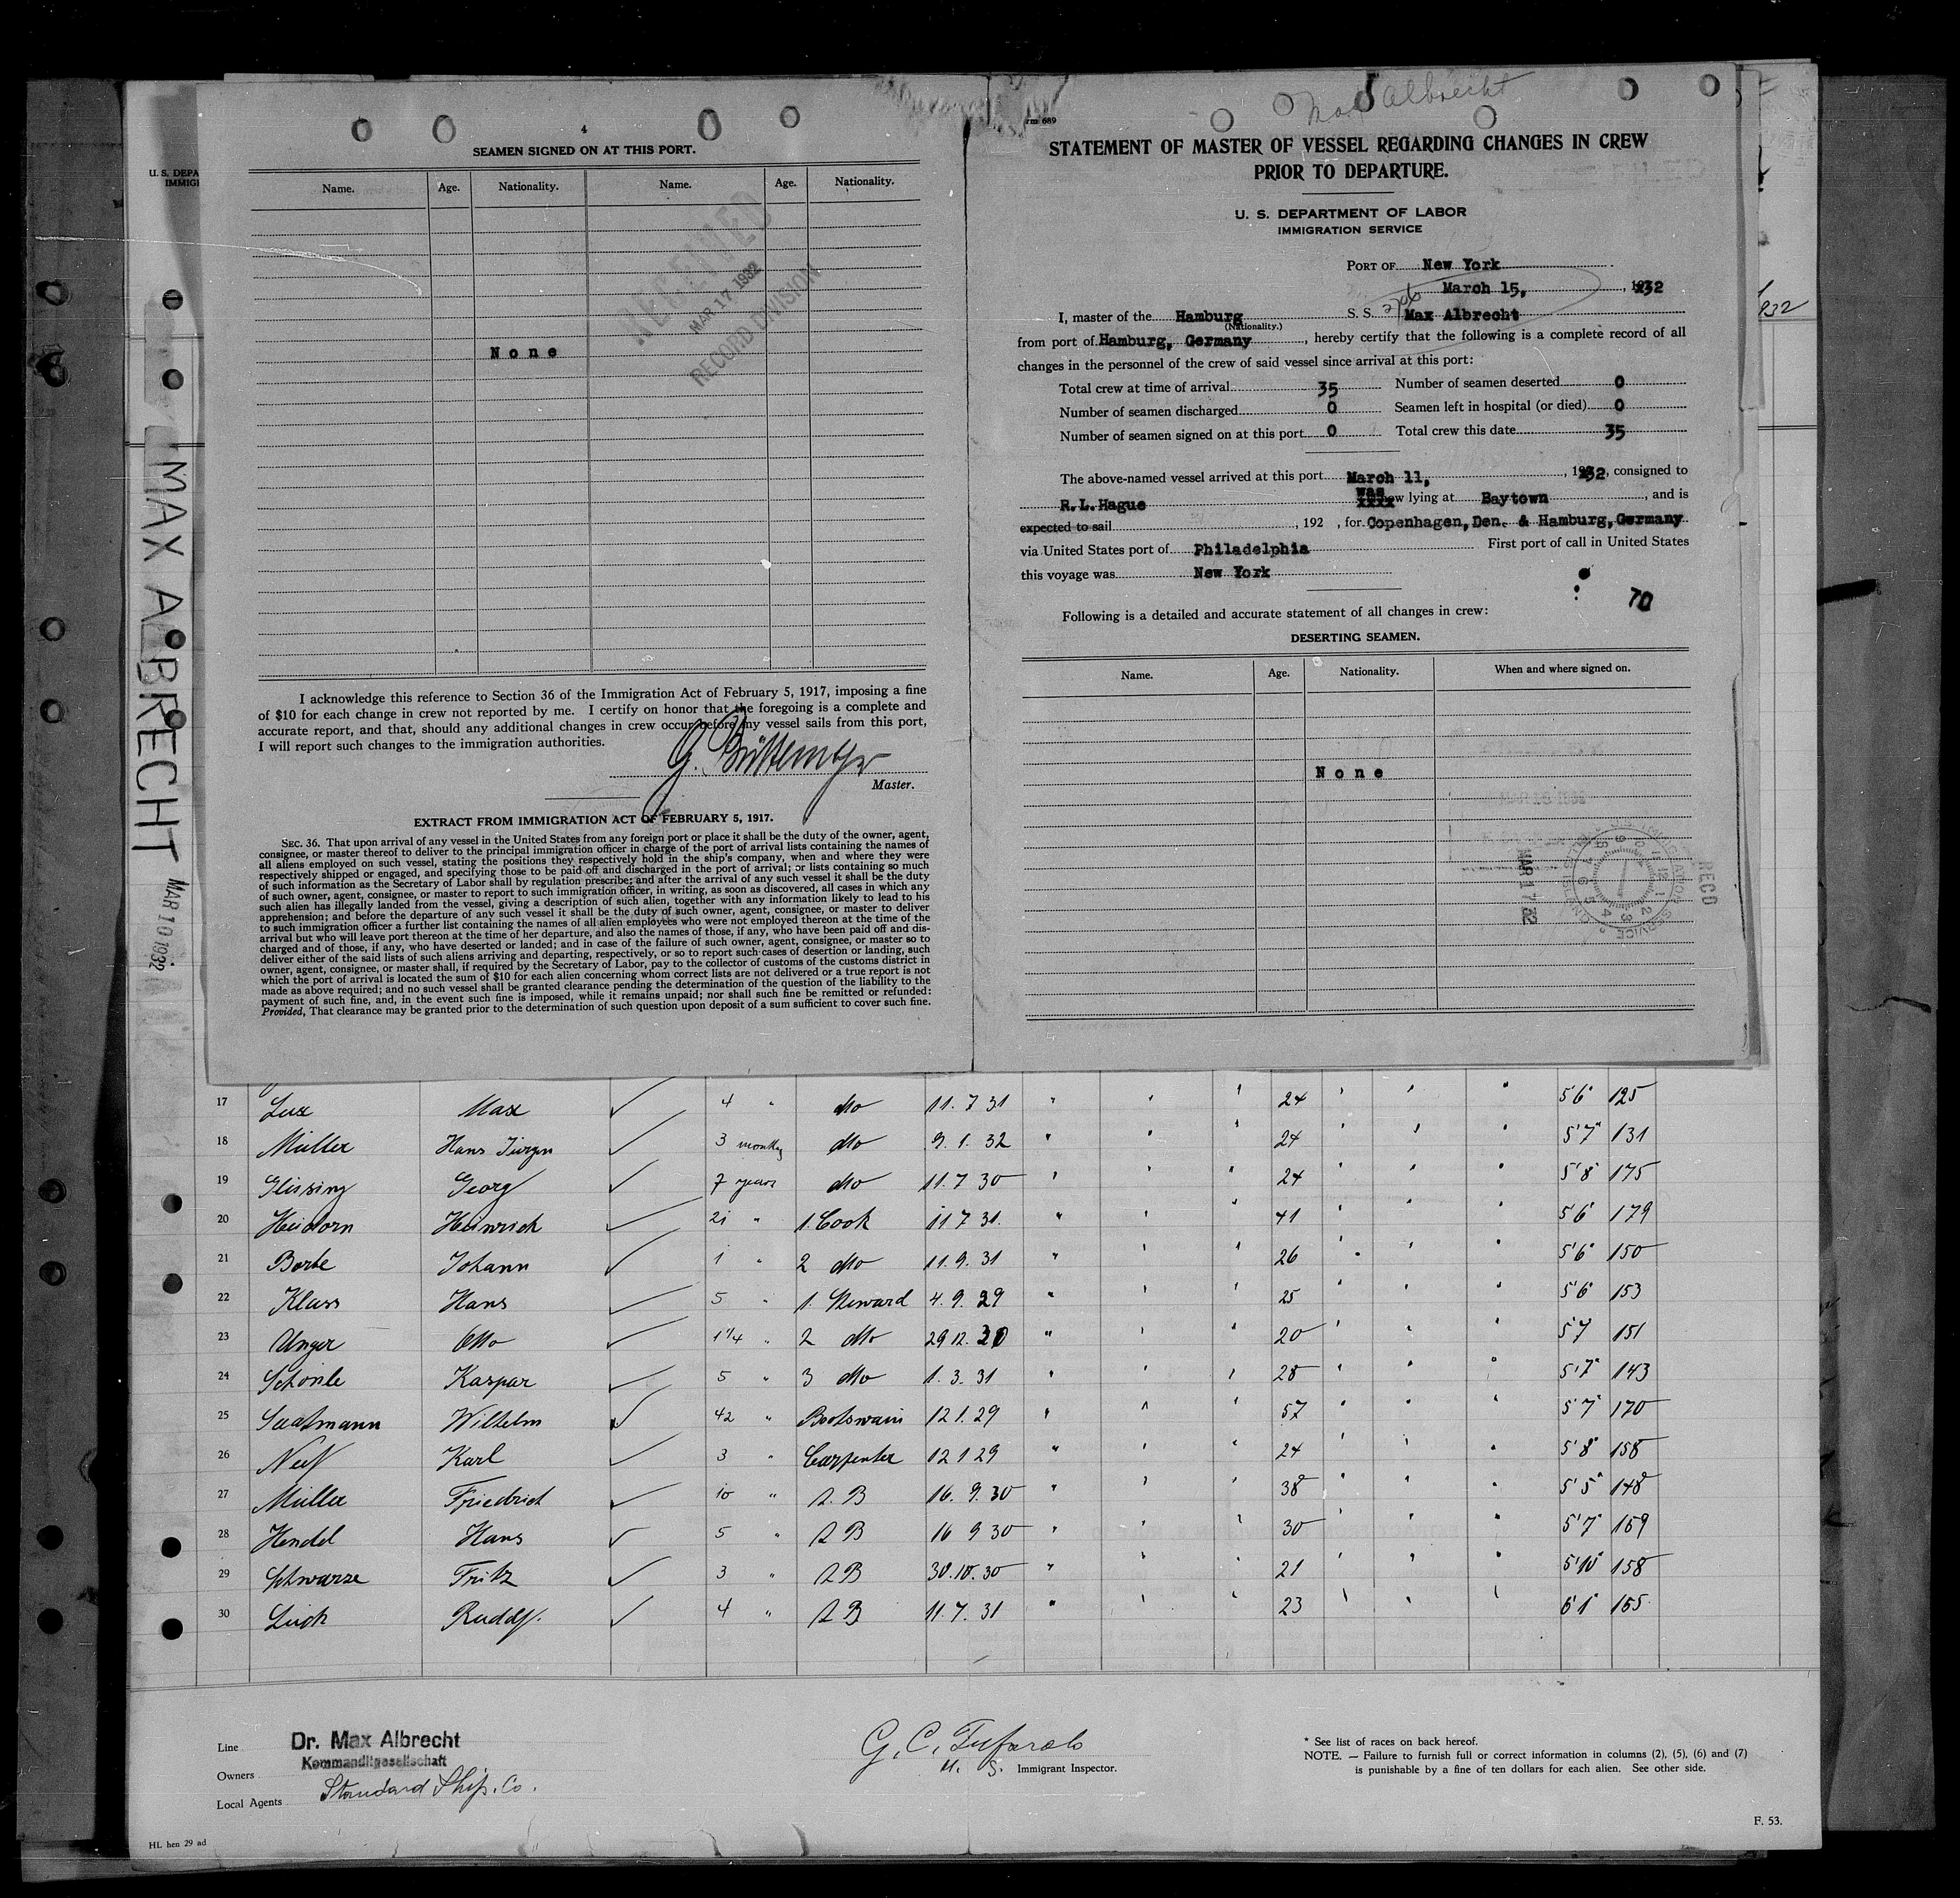 U. S. DEPA
IMMIGI
MAX ALBRECHT MAR 10 1932
4
SEAMEN SIGNED ON AT THIS PORT.
Name. Age. Nationality. Name. Age. Nationality.
RECEIVED
MAR 17 1932
RECORD DIVISION
None
I acknowledge this reference to Section 36 of the Immigration Act of February 5, 1917, imposing a fine
of $10 for each change in crew not reported by me. I certify on honor that the foregoing is a complete and
accurate report, and that, should any additional changes in crew occur before my vessel sails from this port,
I will report such changes to the immigration authorities.
G.
Master.
EXTRACT FROM IMMIGRATION ACT OF FEBRUARY 5, 1917.
SEC. 36. That upon arrival of any vessel in the United States from any foreign port or place it shall be the duty of the owner, agent,
consignee, or master thereof to deliver to the principal immigration officer in charge of the port of arrival lists containing the names of
all aliens employed on such vessel, stating the positions they respectively hold in the ship's company, when and where they were
respectively shipped or engaged, and specifying those to be paid off and discharged in the port of arrival; or lists containing so much
of such information as the Secretary of Labor shall by regulation prescribe; and after the arrival of any such vessel it shall be the duty
of such owner, agent, consignee, or master to report to such immigration officer, in writing, as soon as discovered, all cases in which any
such alien has illegally landed from the vessel, giving a description of such alien, together with any information likely to lead to his
apprehension; and before the departure of any such vessel it shall be the duty of such owner, agent, consignee, or master to deliver
to such immigration officer a further list containing the names of all alien employees who were not employed thereon at the time of the
arrival but who will leave port thereon at the time of her departure, and also the names of those, if any, who have been paid off and dis-
charged and of those, if any, who have deserted or landed; and in case of the failure of such owner, agent, consignee, or master so to
deliver either of the said lists of such aliens arriving and departing, respectively, or so to report such cases of desertion or landing, such
owner, agent, consignee, or master shall, if required by the Secretary of Labor, pay to the collector of customs of the customs district in
which the port of arrival is located the sum of $10 for each alien concerning whom correct lists are not delivered or a true report is not
made as above required; and no such vessel shall be granted clearance pending the determination of the question of the liability to the
payment of such fine, and, in the event such fine is imposed, while it remains unpaid; nor shall such fine be remitted or refunded:
Provided, That clearance may be granted prior to the determination of such question upon deposit of a sum sufficient to cover such fine.
rm 689
Max Albrecht
STATEMENT OF MASTER OF VESSEL REGARDING CHANGES IN CREW
PRIOR TO DEPARTURE.
U. S. DEPARTMENT OF LABOR
IMMIGRATION SERVICE
PORT OF New York
March 15, , 1932
I, master of the Hamburg S. S. Max Albrecht
(Nationality.)
from port of Hamburg, Germany , hereby certify that the following is a complete record of all
changes in the personnel of the crew of said vessel since arrival at this port:
Total crew at time of arrival 35 Number of seamen deserted 0
Number of seamen discharged 0 Seamen left in hospital (or died) 0
Number of seamen signed on at this port 0 Total crew this date 35
The above-named vessel arrived at this port March 11, , 1932, consigned to
R.L.Hague was now lying at Baytown , and is
expected to sail , 192 , for Copenhagen, Den. & Hamburg, Germany
via United States port of Philadelphia First port of call in United States
this voyage was New York
70
Following is a detailed and accurate statement of all changes in crew:
DESERTING SEAMEN.
Name. Age. Nationality. When and where signed on.
None
MAR 17 32
RECD
932
17 Lux Max 4 " do 11. 7 31 " " " 24 " " " 5'6" 125
18 Müller Hans Jürgen 3 months do 9. 1. 32 " " " 24 " " " 5'7" 131
19 Georg 7 years do 11. 7 30 " " " 24 " " " 5'8" 175
20 Heidorn Heinrich 21 " 1. Cook 11 7 31. " " " 41 " " " 5'6" 179
21 Johann 1 " 2 do 11. 9. 31 " " " 26 " " " 5'6" 150
22 Klass Hans 5 " 1. Steward 4. 9. 29 " " " 25 " " " 5'6" 153
23 Unger Otto 1 1/4 " 2 do 29 12. 30 " " " 20 " " " 5'7 151
24 Schönle Kaspar 5 " 3 do 1. 3. 31 " " " 28 " " " 5'7" 143
25 Saatmann Wilhelm 42 " Bootswain 12 1. 29 " " " 57 " " " 5'7" 170
26 Karl 3 " Carpenter 12 1 29 " " " 24 " " " 5'8" 158
27 Müller Friedrich 10 " A. B 16. 9. 30 " " " 38 " " " 5'5" 148
28 Hendel Hans 5 " A B 16 9 30 " " " 30 " " " 5'7" 159
29 Schwarze Fritz 3 " A B 30. 10. 30 " " " 21 " " " 5'10" 158
30 Rudolf. 4 " A B 11. 7. 31 " " " 23 " " " 6'1" 165
Line Dr. Max Albrecht
Kommanditgesellschaft
Owners
Local Agents Standard Ship. Co.
G. C.
U. S. Immigrant Inspector.
* See list of races on back hereof.
NOTE. — Failure to furnish full or correct information in columns (2), (5), (6) and (7)
is punishable by a fine of ten dollars for each alien. See other side.
HL hen 29 ad
F. 53.